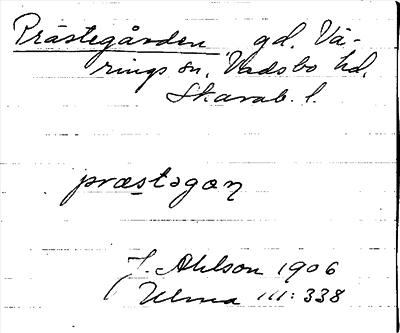 Prästegården, gd. Vä-
rings sn, Vadsbo hd.
Skarab. l.
præstagaɳ
J. Ahlson 1906
Ulma 111: 338